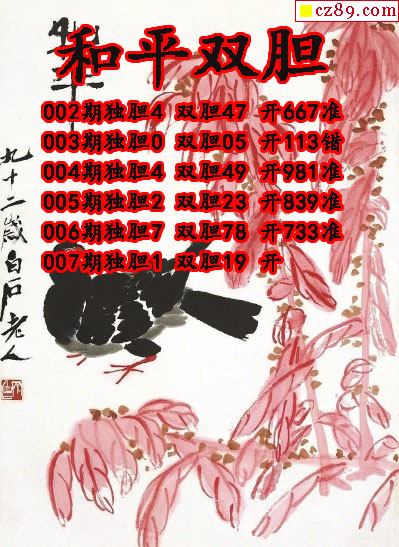 cz89.com
和平双胆
002期独胆4 双胆47 开667准
003期独胆0 双胆05 开113错
004期独胆4 双胆49 开981准
005期独胆2 双胆23 开839准
006期独胆7 双胆78 开733准
007期独胆1 双胆19 开
九十二岁白石老人